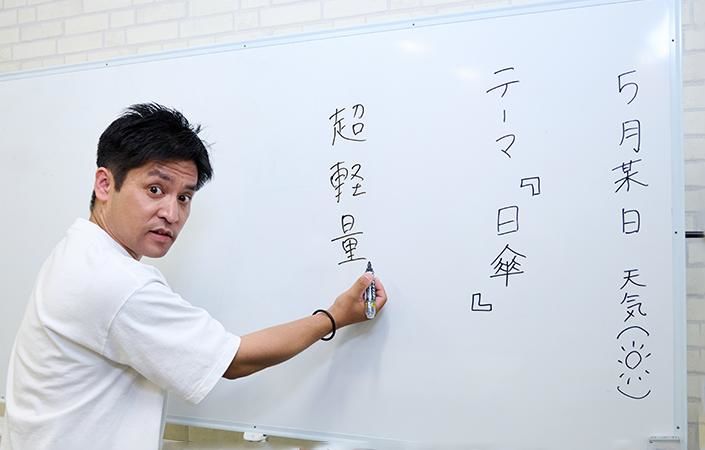 5月某日 天気(☀)
テーマ『日傘』
超軽量